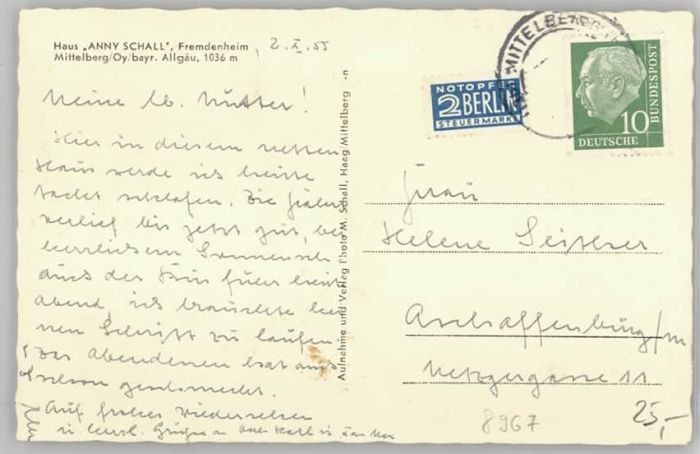 Haus „ANNY SCHALL", Fremdenheim
Mittelberg/Oy/bayr. Allgäu, 1036 m
2.X.55
Meine lb. Mutter!
Hier in diesem netten
Haus werde ich heute
Nacht schlafen. Die Fahrt
verlief bis jetzt gut, bei
herrlichem Sonnensch
auch der Bus fuhr heute
abend, ich brauchte kei
nen Schritt zu laufen.
Das Abendessen hat auch
schon geschmeckt.
Auf frohes Wiedersehen
u. herzl. Grüße
Aufnahme und Verlag Photo M. Schall, Haag/Mittelberg
NOTOPFER
2 BERLIN
STEUERMARKE
MITTELBERG
10
DEUTSCHE
BUNDESPOST
Frau
Helene
Aschaffenburg/m
Metzgergasse 11
25,-
8967